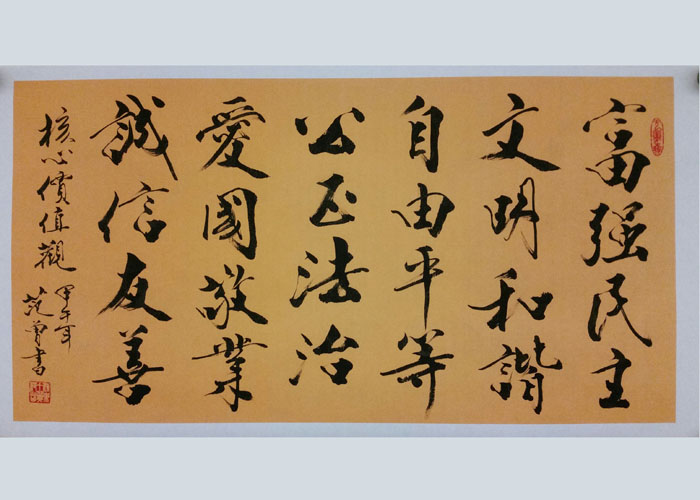 富强民主
文明和諧
自由平等
公正法治
愛國敬業
誠信友善
核心價值觀
甲午年
范曾書